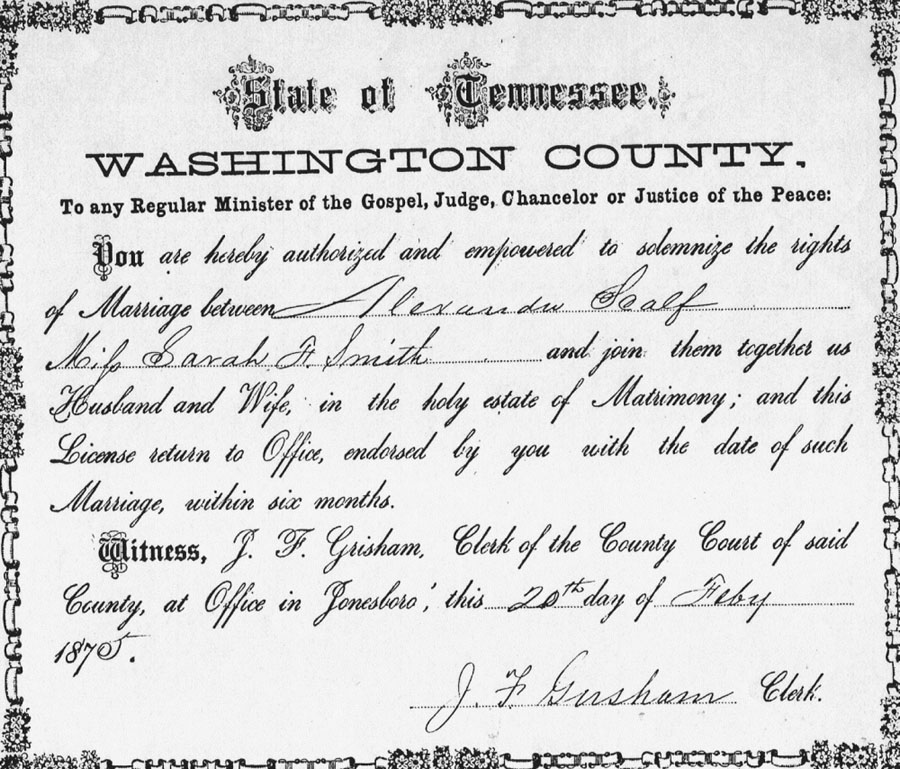 State of Tennessee,
WASHINGTON COUNTY,
To any Regular Minister of the Gospel, Judge, Chancelor or Justice of the Peace:
You are hereby authorized and empowered to solemnize the rights
of Marriage between Alexander Scalf
Miss Sarah F. Smith and join them together as
Husband and Wife, in the holy estate of Matrimony; and this
License return to Office, endorsed by you with the date of such
Marriage, within six months.
Witness, J. F. Grisham, Clerk of the County Court of said
County, at Office in Jonesboro', this 20th day of Feby
1875.
J. F. Grisham Clerk.